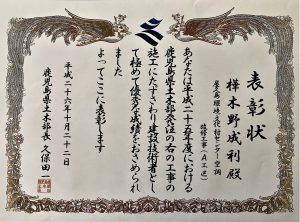 表彰状
樺木野成利殿
屋久島環境文化村センター空調
改修工事(A工区)
あなたは平成二十五年度における
鹿児島県土木部発注の右の工事の
施工にたずさわり建設技術者とし
て極めて優秀な成績をおさめられ
ました
よってここに表彰します
平成二十六年十月二十二日
鹿児島県土木部長 久保田一